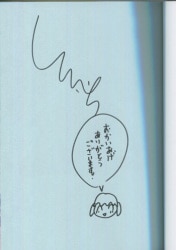 おかいあげ
ありがとう
ございます。